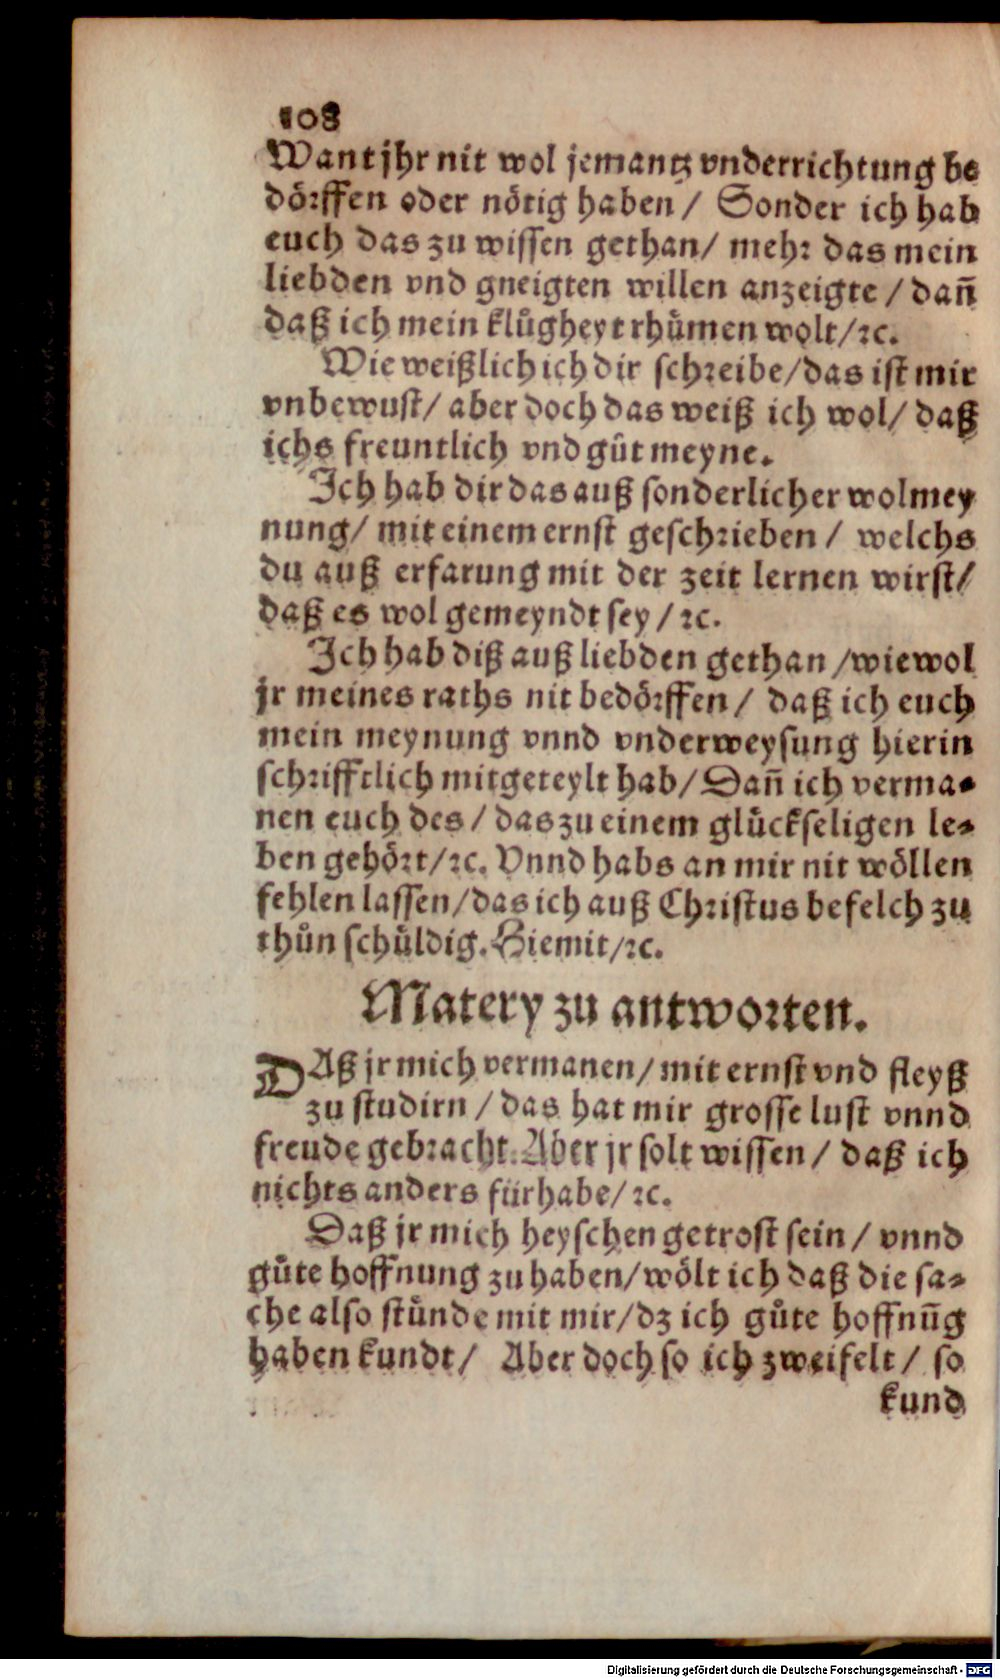 108
Want jhr nit wol jemantz vnderrichtung be
dörffen oder nötig haben / Sonder ich hab
euch das zu wissen gethan / mehr das mein
liebden vnd gneigten willen anzeigte / dañ
daß ich mein klůgheyt rhümen wolt / ꝛc.
Wie weißlich ich dir schreibe / das ist mir
vnbewust / aber doch das weiß ich wol / daß
ichs freuntlich vnd gůt meyne.
Ich hab dir das auß sonderlicher wolmey
nung / mit einem ernst geschrieben / welchs
du auß erfarung mit der zeit lernen wirst /
daß es wol gemeyndt sey / ꝛc.
Ich hab diß auß liebden gethan / wiewol
jr meines raths nit bedörffen / daß ich euch
mein meynung vnnd vnderweysung hierin
schrifftlich mitgeteylt hab / Dañ ich verma-
nen euch des / das zu einem glückseligen le-
ben gehört / ꝛc. Vnnd habs an mir nit wöllen
fehlen lassen / das ich auß Christus befelch zu
thůn schüldig. Hiemit / ꝛc.
Matery zu antworten.
DAß jr mich vermanen / mit ernst vnd fleyß
zu studirn / das hat mir grosse lust vnnd
freude gebracht. Aber jr solt wissen / daß ich
nichts anders fürhabe / ꝛc.
Daß jr mich heyschen getrost sein / vnnd
gůte hoffnung zu haben / wölt ich daß die sa-
che also stünde mit mir / dz ich gůte hoffnũg
haben kundt / Aber doch so ich zweifelt / so
kund
Digitalisierung gefördert durch die Deutsche Forschungsgemeinschaft - DFG